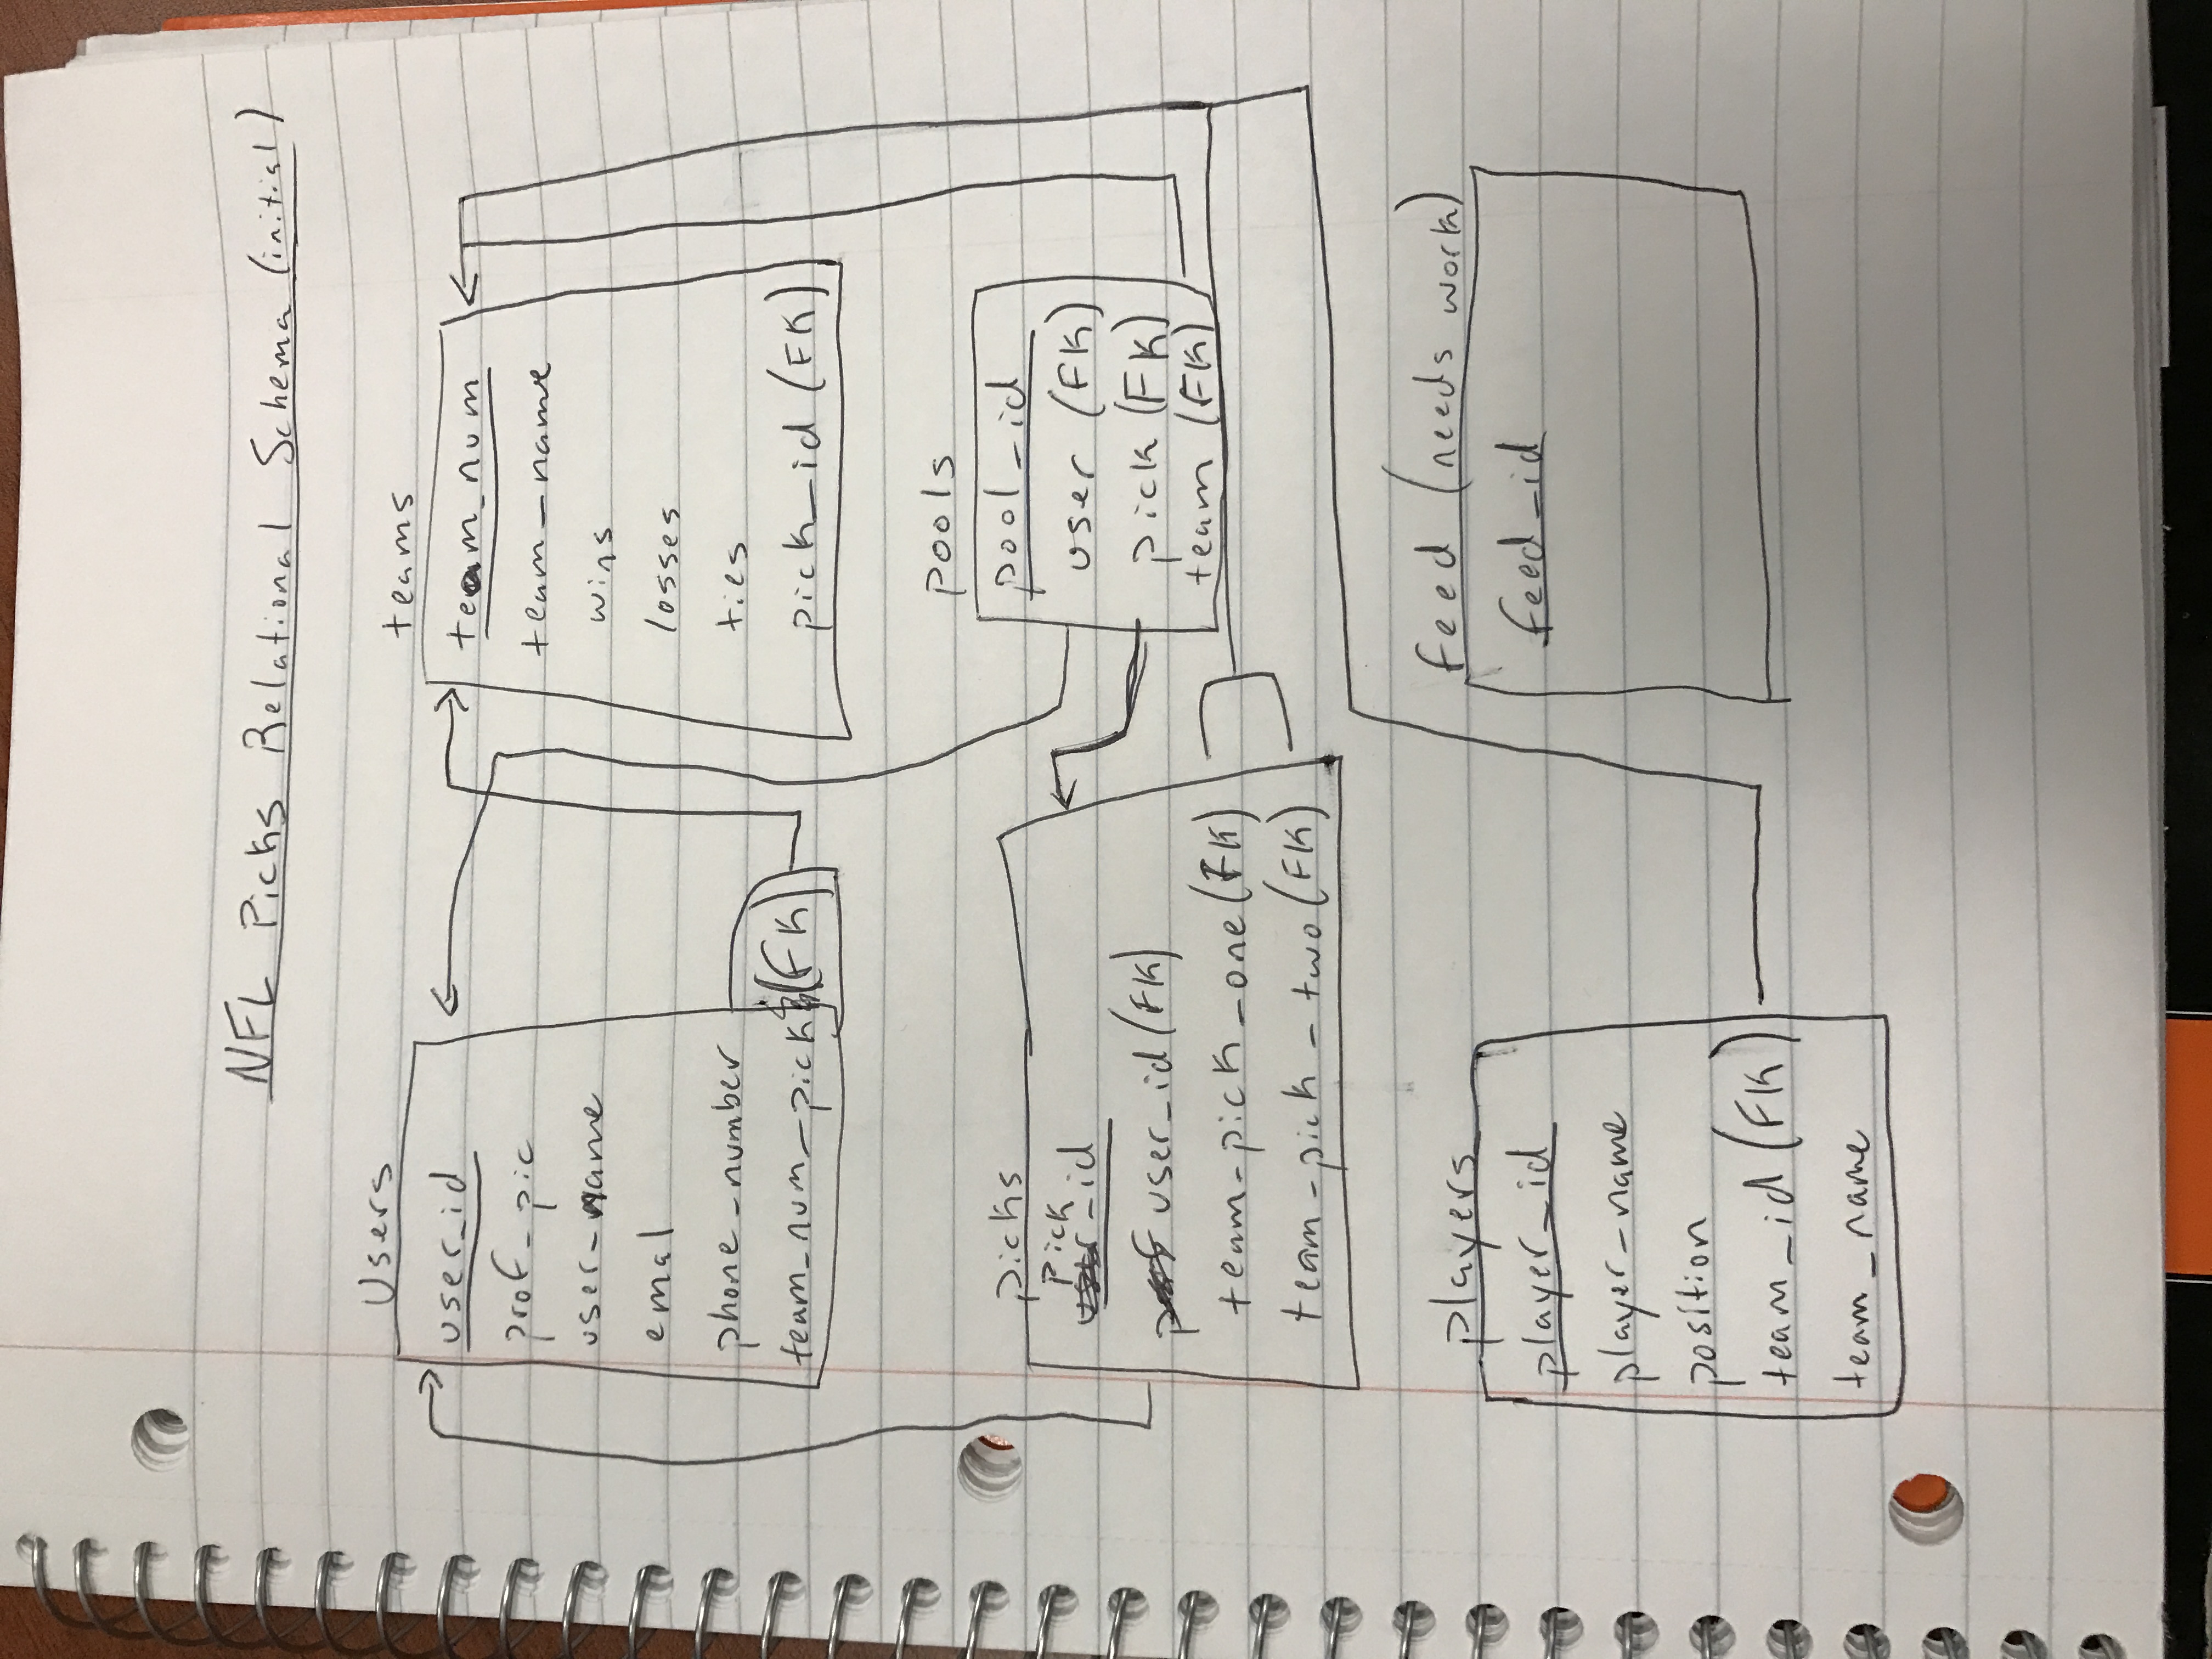 NFL Picks Relational Schema (initial)
Users
user_id
prof_pic
user_name
emal
phone_number
team_num_pick (FK)
teams
team_num
team_name
wins
losses
ties
pick_id (FK)
pools
pool_id
user (FK)
pick (FK)
team (FK)
picks
pick
_id
user_id (FK)
team_pick_one (FK)
team_pick_two (FK)
players
player_id
player_name
position
team_id (FK)
team_name
feed (needs work)
feed_id